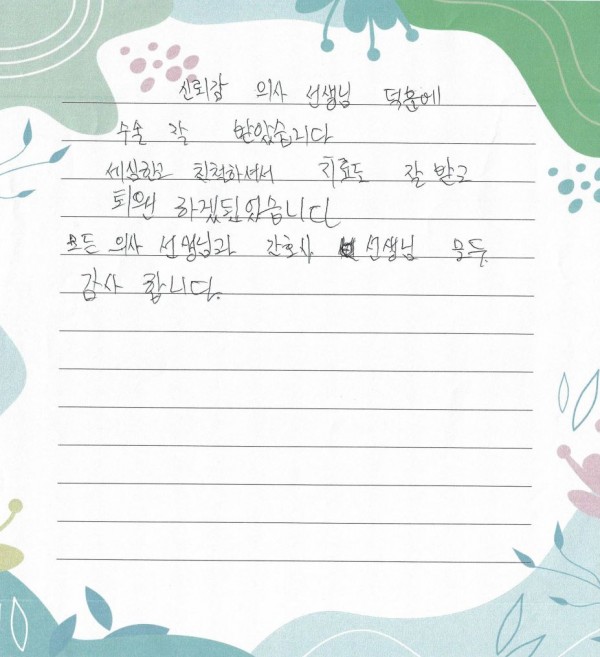 신뢰감 의사 선생님 덕분에
수술 잘 받았습니다
세심하고 친절하셔서 치료도 잘 받고
퇴원 하겠되었습니다
모든 의사 선생님과 간호사 선생님 모두
감사 합니다.